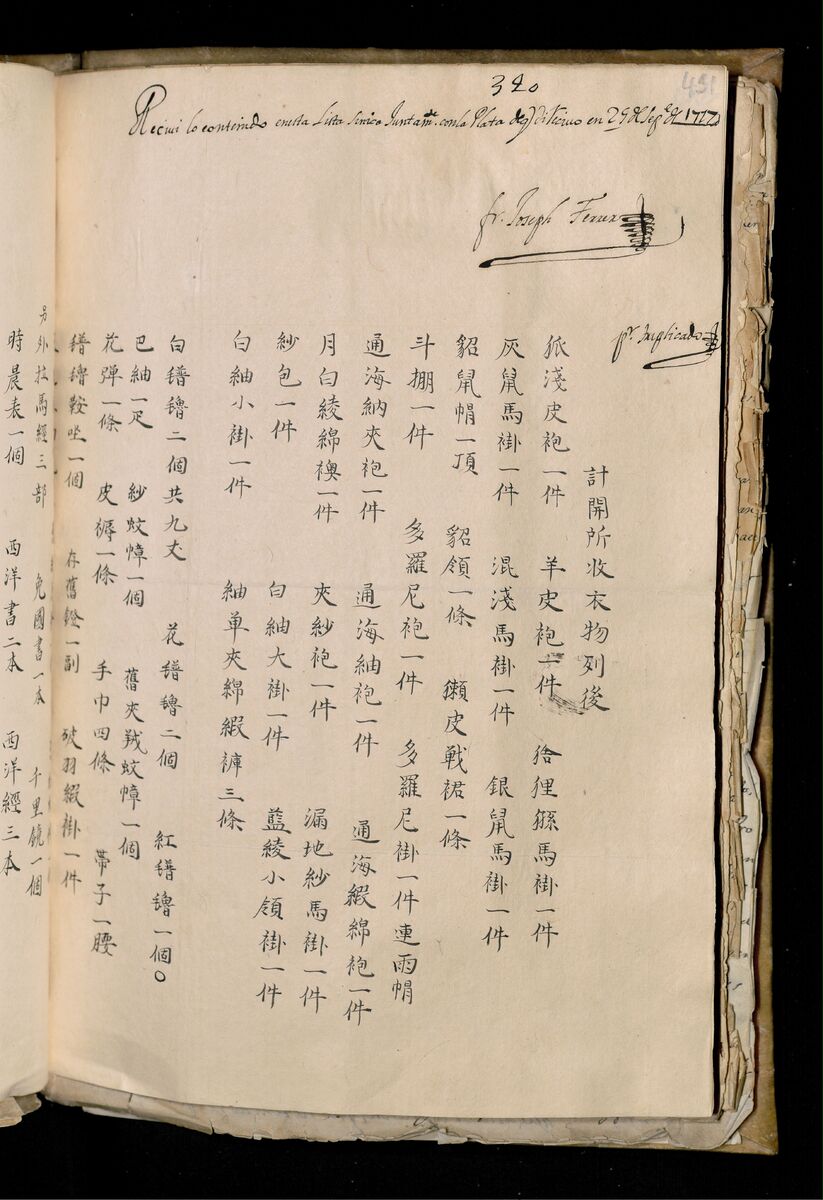 320
431
Recivi lo contenido en esta Lista Sinica Juntamte. con la Plata en 29 de Sepe. de 1717
fr. Joseph Ferrer
pr. Duplicado
計開所收衣物列後
狐淺皮袍一件 羊皮袍一件 猞狸猻馬褂一件
灰鼠馬褂一件 混淺馬褂一件 銀鼠馬褂一件
貂鼠帽一頂 貂領一條 獺皮戰裙一條
斗掤一件 多羅尼袍一件 多羅尼褂一件連雨帽
通海納夾袍一件 通海紬袍一件 通海緞綿袍一件
月白綾綿襖一件 夾紗袍一件 漏地紗馬褂一件
紗包一件 白紬大褂一件 藍綾小領褂一件
白紬小褂一件 紬单夾綿緞褲三條
白氆氇二個共九丈 花氆氇二個 紅氆氇一個○
巴紬一疋 紗蚊幛一個 舊夾羢蚊幛一個
花彈一條 皮褥一條 手巾四條 帶子一腰
氆氇鞍坐一個 存舊鐙一副 破羽緞褂一件
另外拉馬經三部 免圖書一本 千里鏡一個
時晨表一個 西洋書二本 西洋經三本